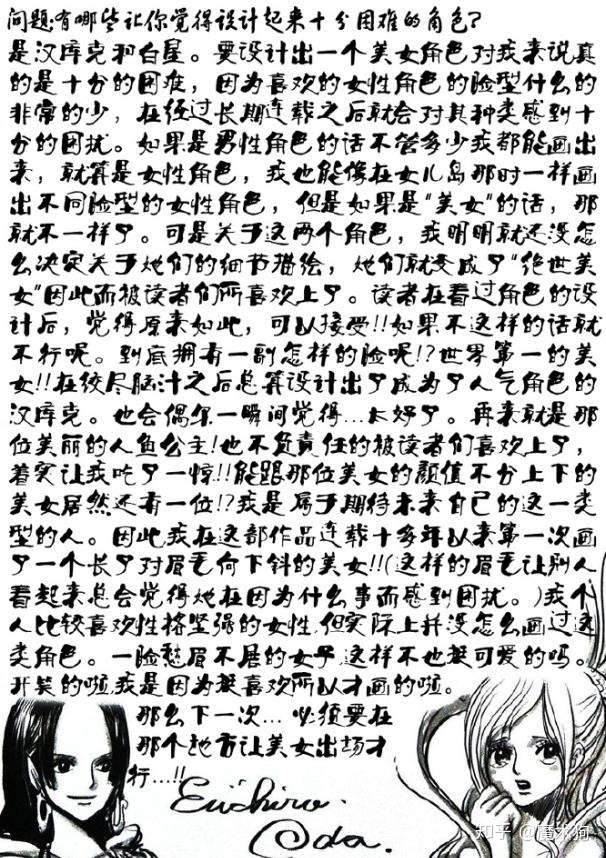 问题:有哪些让你觉得设计起来十分困难的角色?
是汉库克和白星。要设计出一个美女角色对我来说真
的是十分的困难，因为喜欢的女性角色的脸型什么的
非常的少，在经过长期连载之后就会对其种类感到十
分的困扰。如果是男性角色的话不管多少我都能画出
来，就算是女性角色，我也能像在女儿岛那时一样画
出不同脸型的女性角色，但是如果是“美女”的话，那
就不一样了。可是关于这两个角色，我明明就还没怎
么决定关于她们的细节描绘，她们就变成了“绝世美
女”因此而被读者们所喜欢上了。读者在看过角色的设
计后，觉得原来如此，可以接受!!如果不这样的话就
不行呢。到底拥有一副怎样的脸呢!?世界第一的美
女!!在绞尽脑汁之后总算设计出了成为了人气角色的
汉库克。也会偶尔一瞬间觉得...太好了。再来就是那
位美丽的人鱼公主!也不负责任的被读者们喜欢上了，
着实让我吃了一惊!!能跟那位美女的颜值不分上下的
美女居然还有一位!?我是属于期待未来自己的这一类
型的人。因此我在这部作品连载十多年以来第一次画
了一个长了对眉毛向下斜的美女!!(这样的眉毛让别人
看起来总会觉得她在因为什么事而感到困扰。)我个
人比较喜欢性格坚强的女性,但实际上并没怎么画过这
类角色。一脸愁眉不展的女子,这样不也挺可爱的吗。
开笑的啦,我是因为挺喜欢所以才画的啦。
那么下一次... 必须要在
那个地方让美女出场才
行...!!
Eiichiro.
Oda.
知乎 @魔术狗